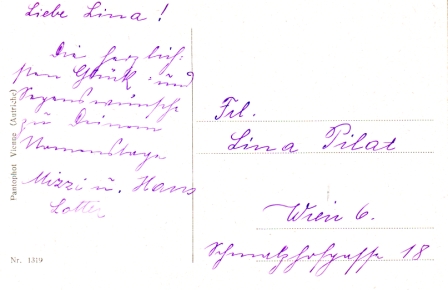 Liebe Lina!
Die herzlich-
sten Glück- und
Segenswünsche
zu Deinem
Namenstage
Mizzi u. Hans
Frl.
Lina Pilat
Wien 6.
Schmalzhofgasse 18
Plantophot Vienne (Autriche)
Nr. 1319